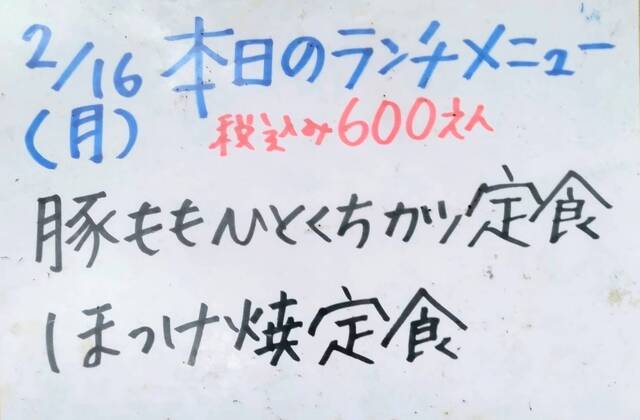 2/16 本日のランチメニュー
(月) 税込み600えん
豚ももひとくちカツ定食
ほっけ焼定食